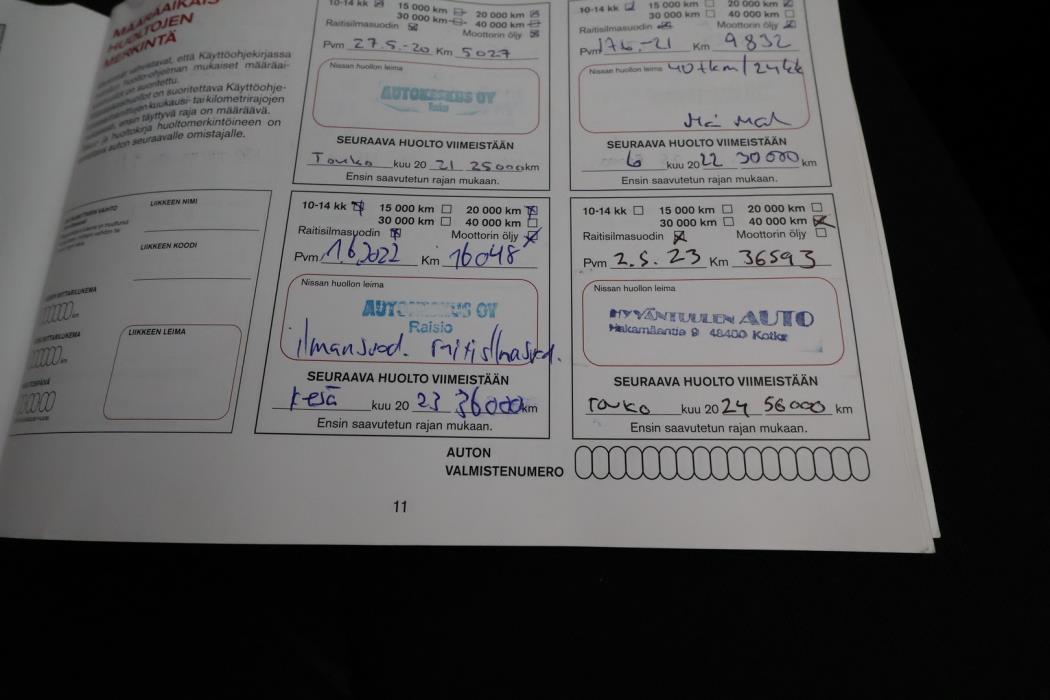 MÄÄRÄAIKAIS-
HUOLTOJEN
MERKINTÄ
että Käyttöohjekirjassa
mukaiset määräai-
suoritettu.
on suoritettava Käyttöohje-
kuukausi- tai kilometrirajojen
ensin täyttyvä raja on määräävä.
ja huoltokirja huoltomerkintöineen on
auton seuraavalle omistajalle.
LIIKKEEN NIMI
LIIKKEEN KOODI
LIIKKEEN LEIMA
10-14 kk 15 000 km 20 000 km
30 000 km 40 000 km
Raitisilmasuodin Moottorin öljy
Pvm 27.5.-20 Km 5027
Nissan huollon leima
AUTOKESKUS OY
SEURAAVA HUOLTO VIIMEISTÄÄN
Touko kuu 20 21 25000 km
Ensin saavutetun rajan mukaan.
10-14 kk 15 000 km 20 000 km
30 000 km 40 000 km
Raitisilmasuodin Moottorin öljy
Pvm 17.6.-21 Km 9832
Nissan huollon leima 40tkm/24kk
SEURAAVA HUOLTO VIIMEISTÄÄN
6 kuu 20 22 30000 km
Ensin saavutetun rajan mukaan.
10-14 kk 15 000 km 20 000 km
30 000 km 40 000 km
Raitisilmasuodin Moottorin öljy
Pvm 1.6.2022 Km 16048
Nissan huollon leima
AUTOKESKUS OY
Raisio
ilmansuod. raitisilmasuod.
SEURAAVA HUOLTO VIIMEISTÄÄN
kesä kuu 20 23 36000 km
Ensin saavutetun rajan mukaan.
10-14 kk 15 000 km 20 000 km
30 000 km 40 000 km
Raitisilmasuodin Moottorin öljy
Pvm 2.5.23 Km 36593
Nissan huollon leima
HYVÄNTUULEN AUTO
Hakamäentie 9 48400 Kotka
SEURAAVA HUOLTO VIIMEISTÄÄN
Touko kuu 20 24 56000 km
Ensin saavutetun rajan mukaan.
AUTON
VALMISTENUMERO
11